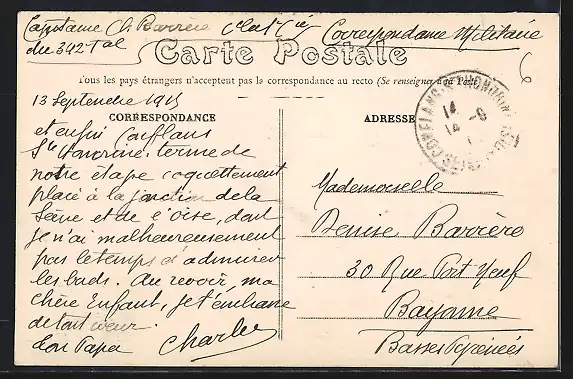 Capitaine Ch. Barrère Correspondance Militaire
du 342 Tal
Carte Postale
Tous les pays étrangers n'acceptent pas la correspondance au recto (Se renseigner à la Poste)
13 Septembre 1915
CORRESPONDANCE
ADRESSE
et enfin Conflans
Ste Honorine. terme de
notre étape coquettement
placé à la jonction de la
Seine et de l'Oise, dont
je n'ai malheureusement
pas le temps d'admirer
les bords. Au revoir, ma
chère Enfant, je t'embrasse
de tout cœur.
Ton Papa Charles
Mademoiselle
Denise Barrère
30 Rue Port Neuf
Bayonne
Basses Pyrénées
6